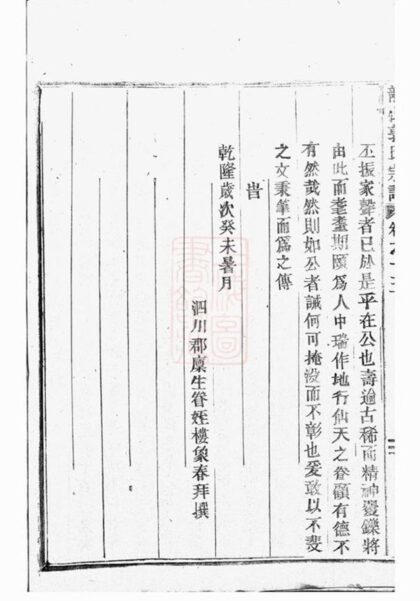 丕振家聲者已於是乎在公也壽逾古稀而精神矍鑠將
由此而耄耋期頤爲人中瑞作地行仙天之眷顧有德不
有然哉然則如公者誠何可掩沒而不彰也爰敢以不斐
之文秉筆而爲之傳
旹
乾隆歲次癸未暑月
泗川郡廩生眷姪樓象春拜撰